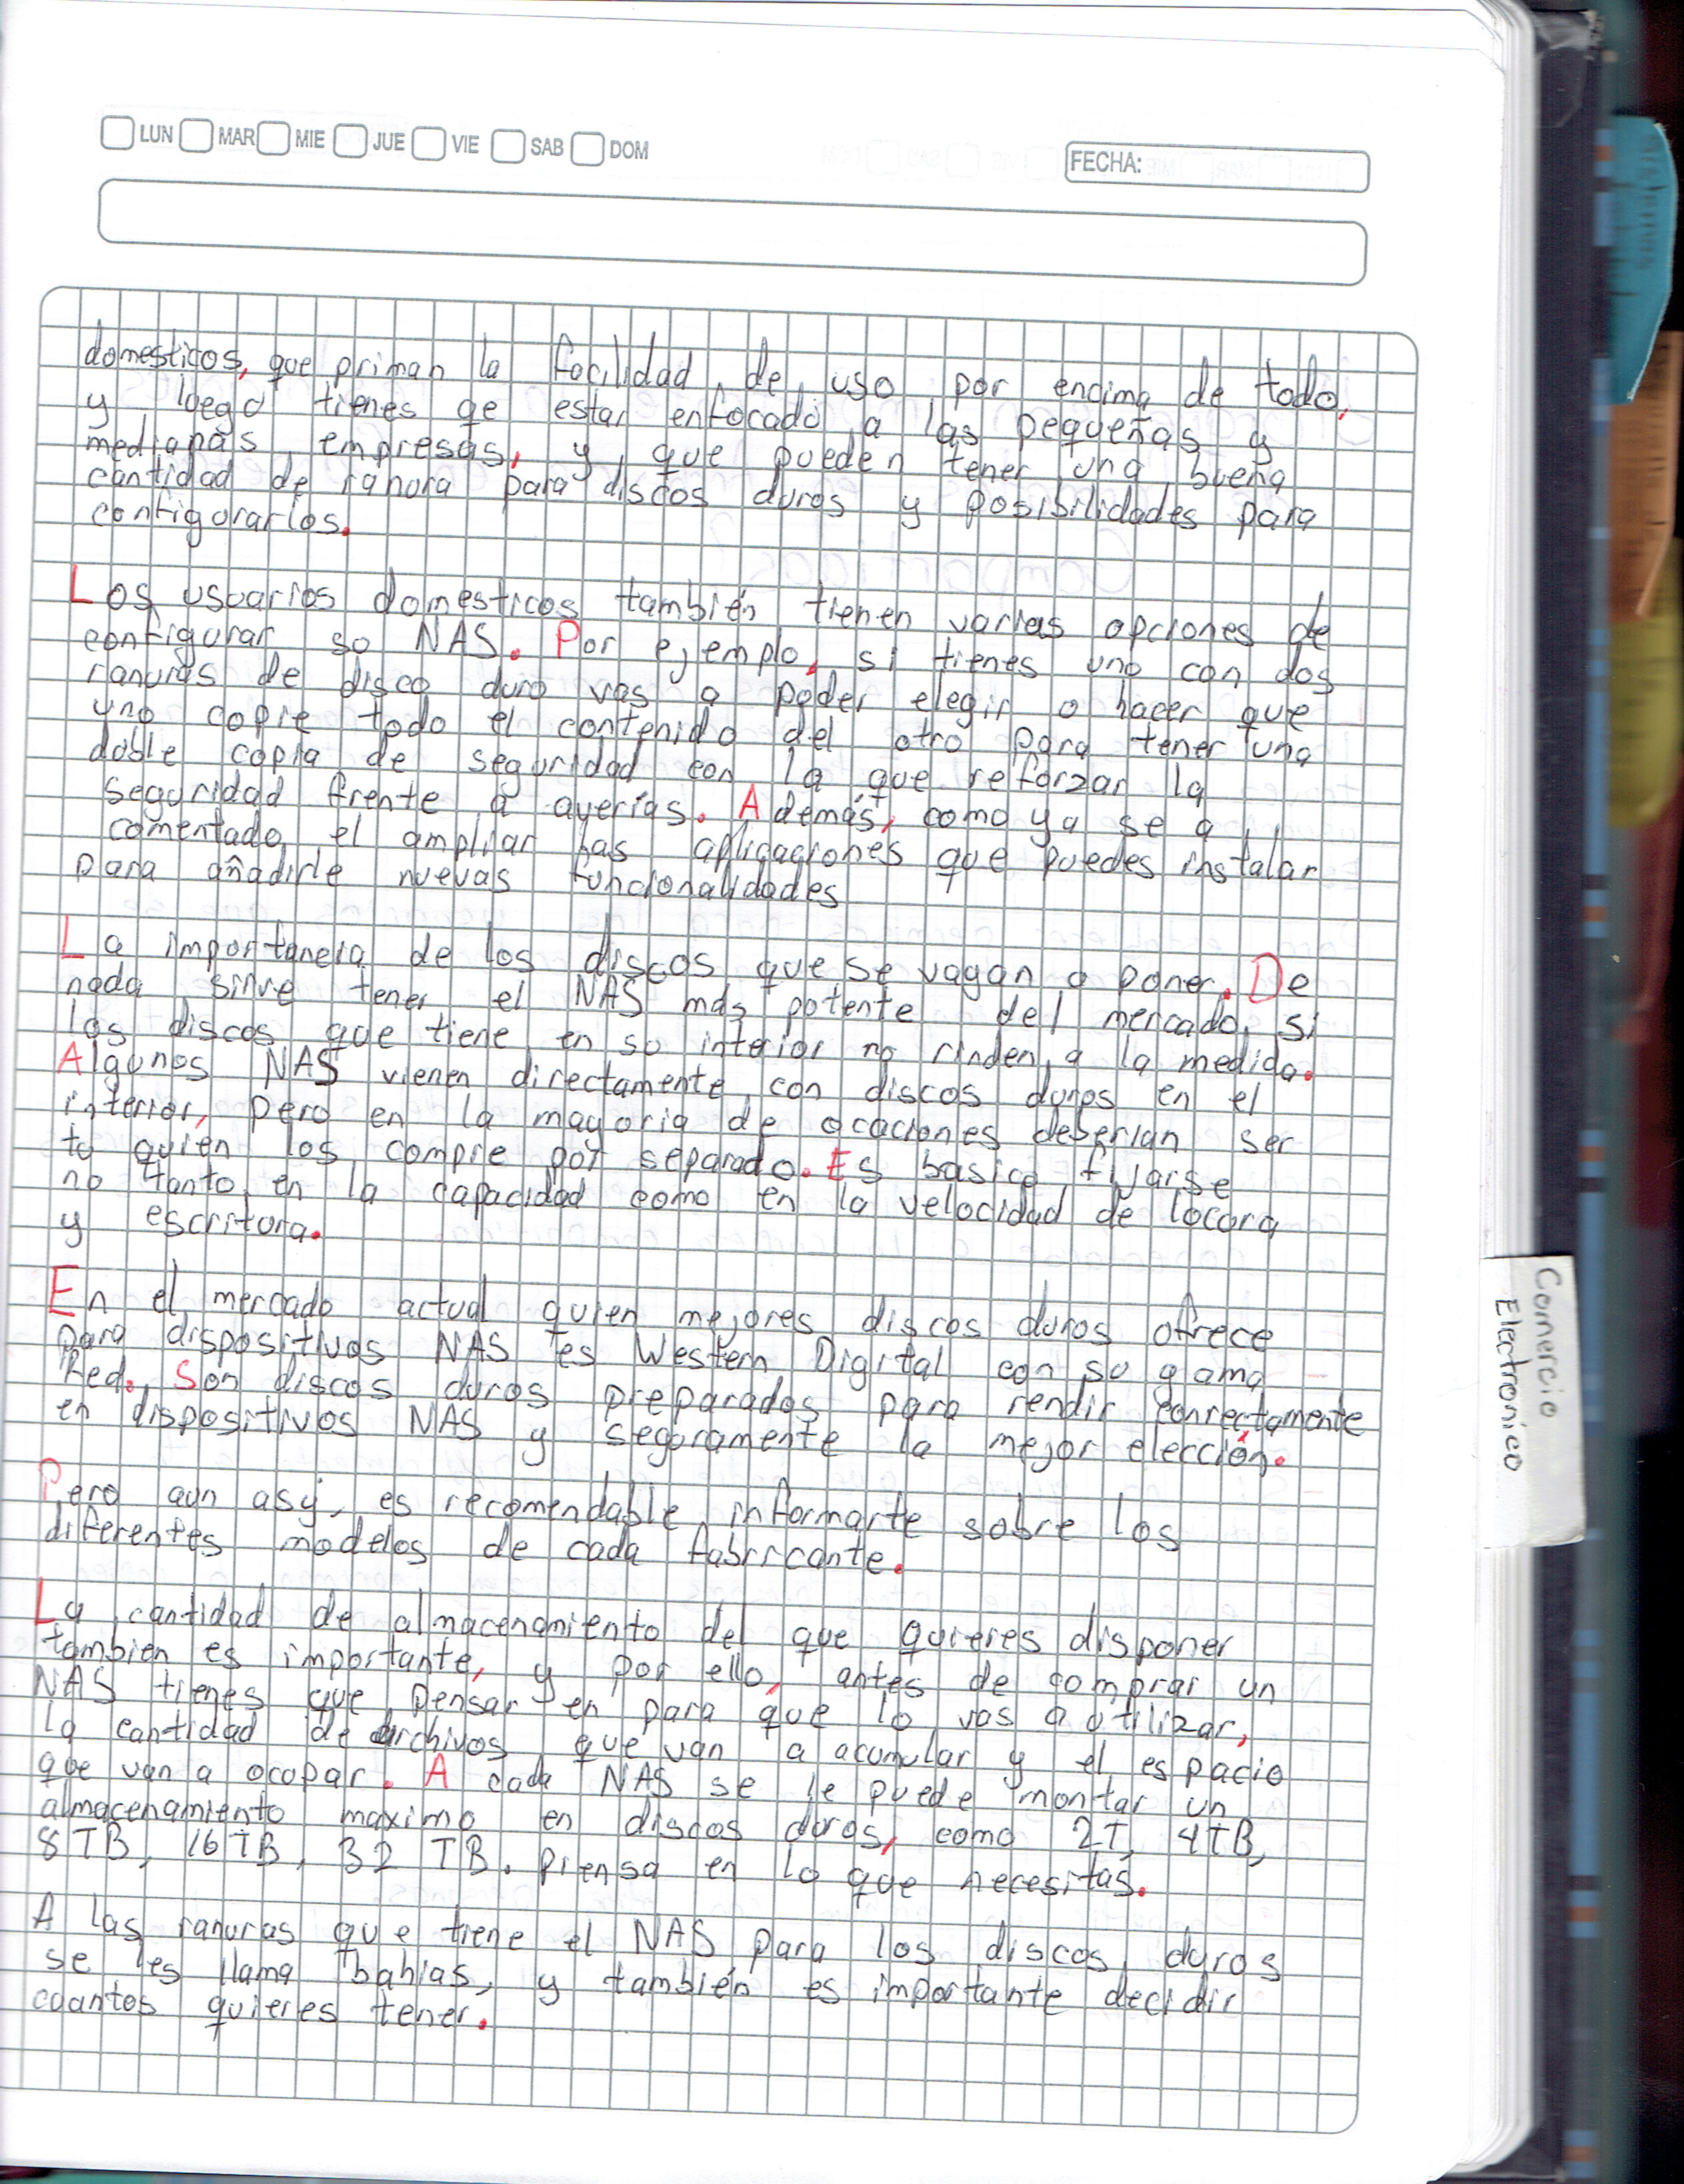 LUN MAR MIE JUE VIE SAB DOM
FECHA:
domesticos, que priman la facilidad de uso por encima de todo,
y luego tienes qe estar enfocado a las pequeñas y
medianas empresas, y que pueden tener una buena
cantidad de ranura para discos duros y posibilidades para
configurarlos.
Los usuarios domesticos también tienen varias opciones de
configurar so NAS. Por ejemplo, si tienes uno con dos
ranuras de disco duro vas a poder elegir o hacer que
uno copie todo el contenido del otro para tener una
doble copia de seguridad con la que reforzar la
seguridad frente a averías. Además, como ya se a
comentado, el ampliar has aplicaciones que puedes instalar
para añadirle nuevas funcionalidades
La importancia de los discos que se vagan a poner. De
nada sirve tener el NAS más potente del mercado, si
los discos que tiene en so interior no rinden a la medida.
Algunos NAS vienen directamente con discos duros en el
interior, pero en la mayoria de ocaciones deberian ser
tu quien los compre por separado. Es basico fijarse
no tanto en la capacidad como en la velocidad de locora
y escritura.
En el mercado actual quien mejores discos duros ofrece
para dispositivos NAS es Western Digital con so gama
Red. Son discos duros preparados para rendir conrectamente
en dispositivos NAS y seguramente la mejor elección.
Pero aun asy, es recomendable informarte sobre los
diferentes modelos de cada fabricante.
La cantidad de almacenamiento del que quieres disponer
tambien es importante, y por ello, antes de comprar un
NAS tienes que pensar en para que lo vas a utilizar,
la cantidad de archivos que van a acumular y el espacio
que van a ocupar. A cada NAS se le puede montar un
almacenamiento maximo en discos duros, como 2T, 4TB,
8TB, 16TB, 32 TB. Piensa en lo que necesitas.
A las ranuras que tiene el NAS para los discos duros
se les llama bahias, y también es importante decidir
cuantos quieres tener.
Comercio
Electronico